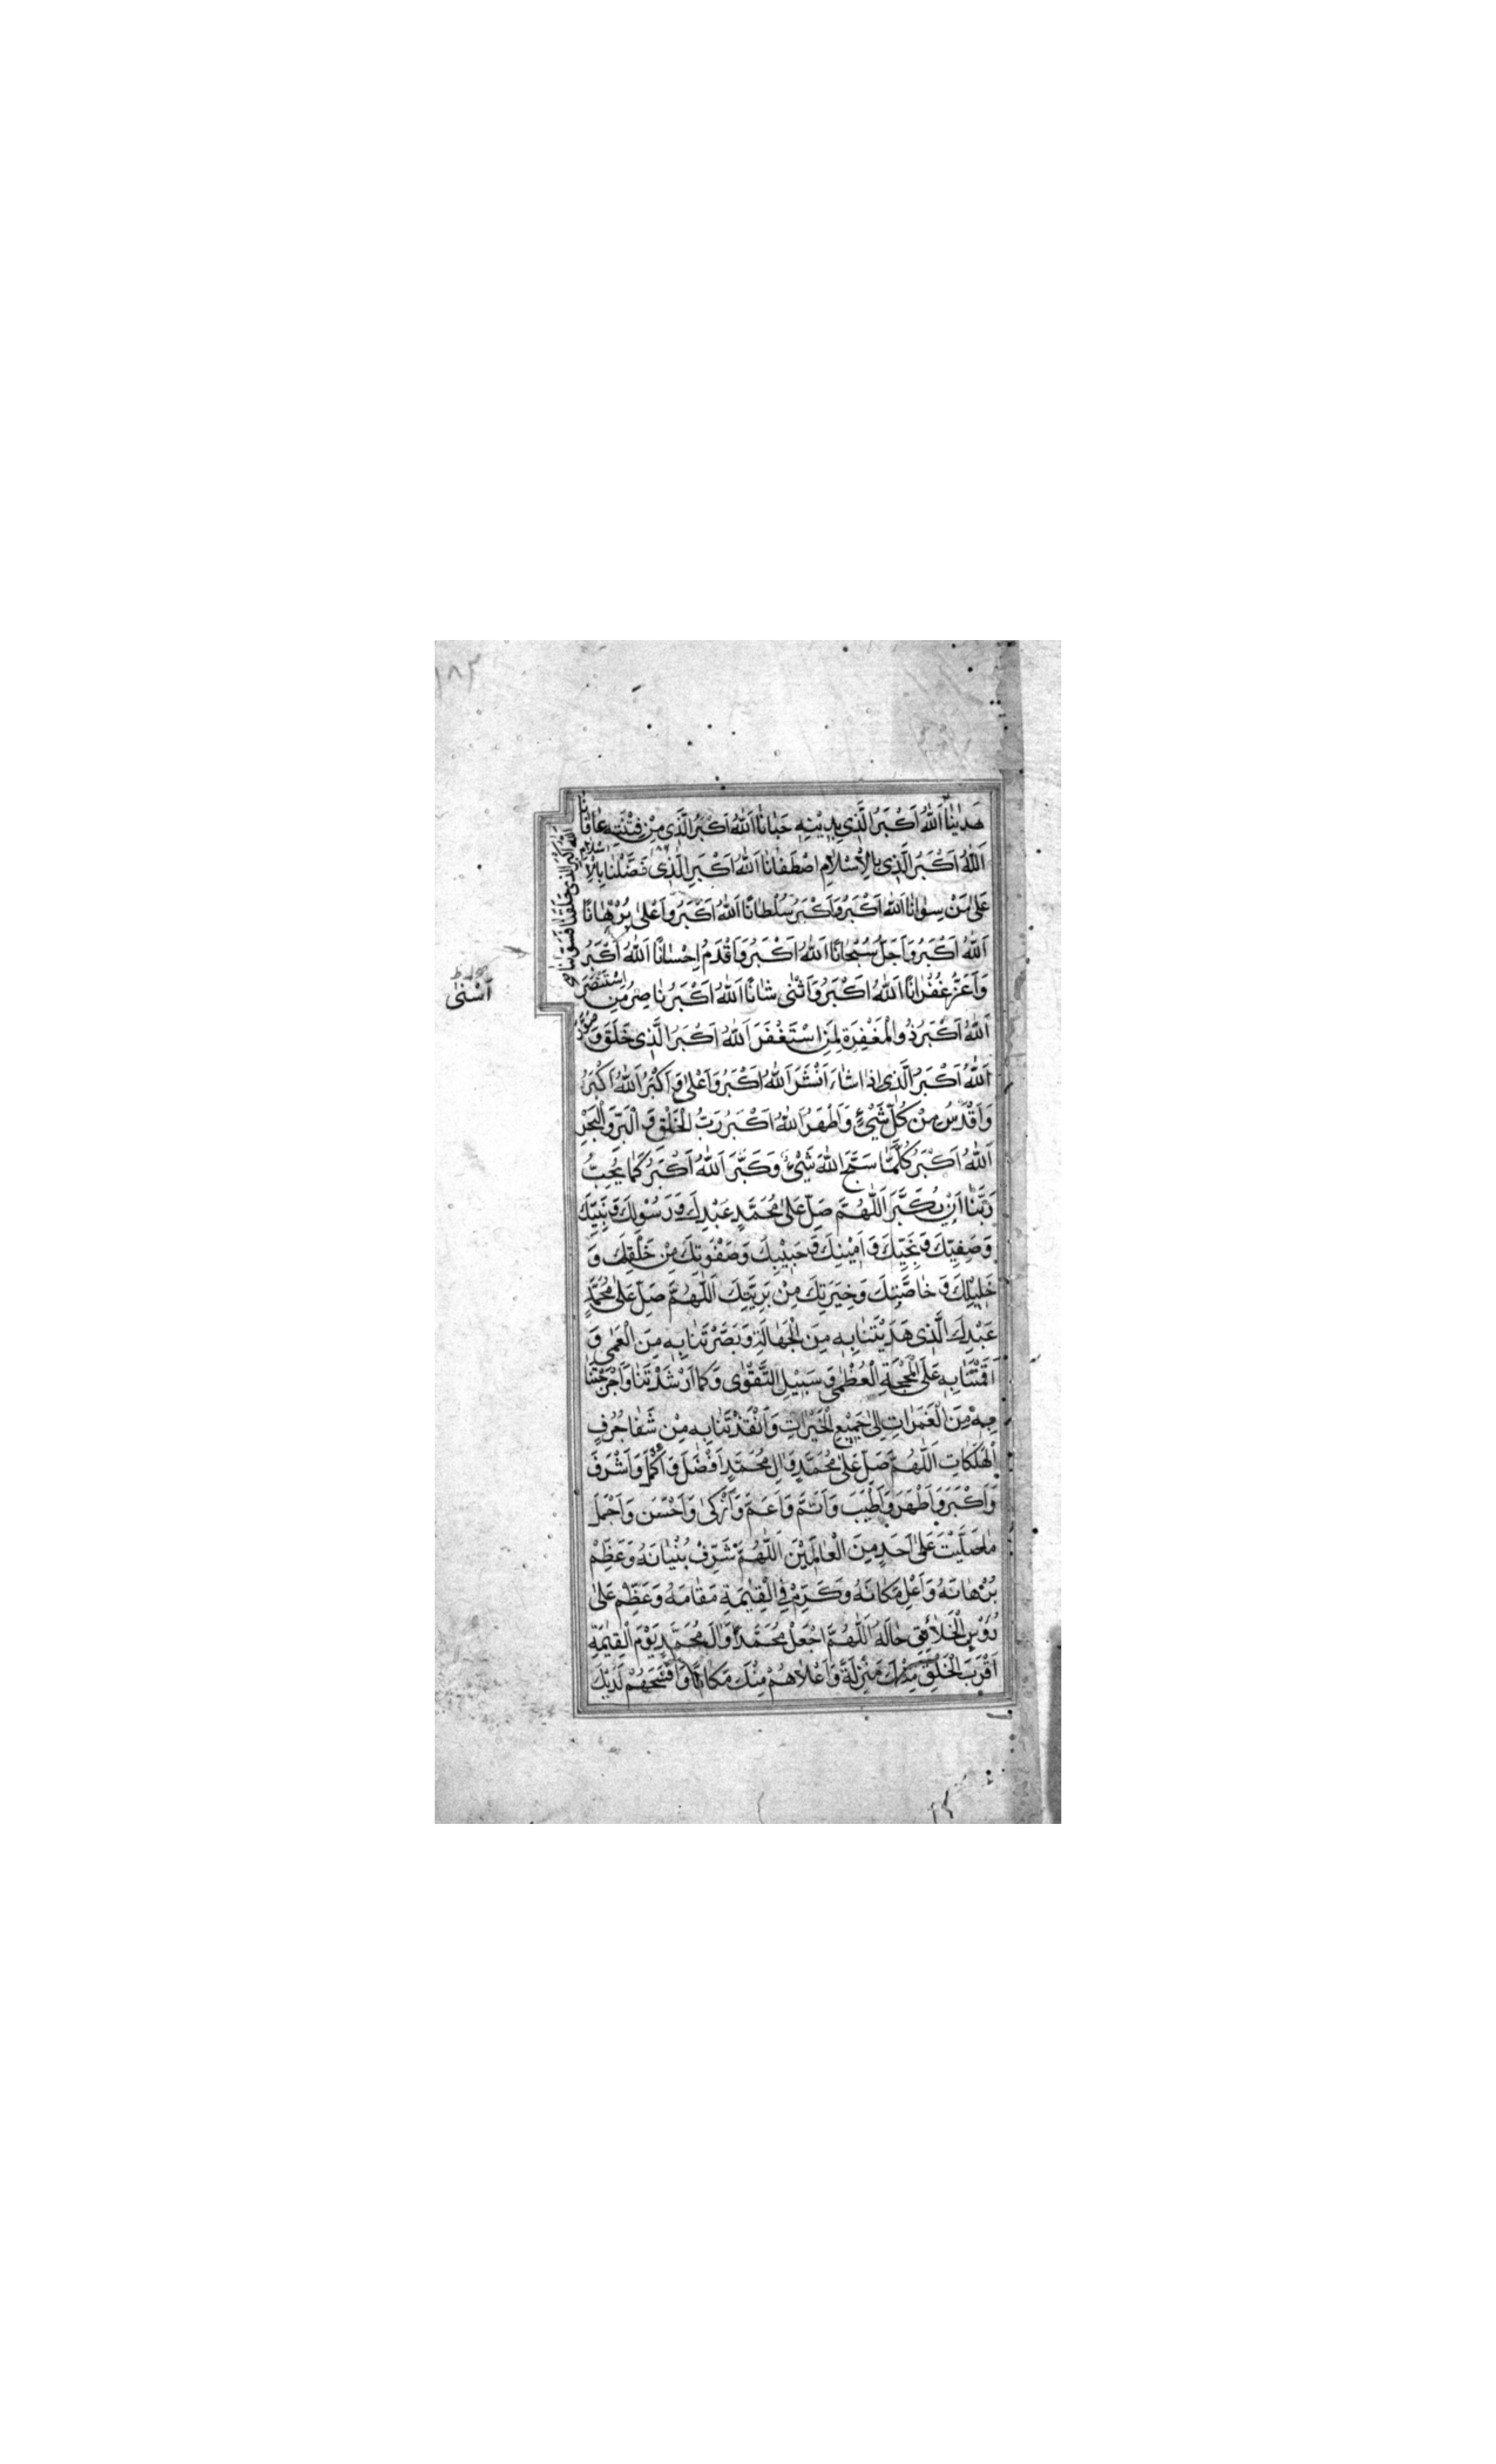 ١٨٢
هَدٰینٰا اَللّٰهُ اَکْبَرُ الَّذی بِدِیْنِهِ حَبٰانٰا اَللّٰهُ اَکْبَرُ الَّذی مِنْ فِتْنَتِهِ عٰافٰانٰا
اَللّٰهُ اَکْبَرُ الَّذی بِالْاِسْلٰامِ اصْطَفٰانٰا اَللّٰهُ اَکْبَرُ الَّذی فَضَّلْنٰا بِالْاِسْلٰامِ
عَلیٰ مَنْ سِوٰانٰا اَللّٰهُ اَکْبَرُ وَاَکْبَرُ سُلْطٰانًا اَللّٰهُ اَکْبَرُ وَاَعْلیٰ بُرْهٰانًا
اَللّٰهُ اَکْبَرُ وَاَجَلُّ سُبْحٰانًا اَللّٰهُ اَکْبَرُ وَاَقْدَمُ اِحْسٰانًا اَللّٰهُ اَکْبَرُ
وَاَعَزُّ غُفْرٰانًا اَللّٰهُ اَکْبَرُ وَاَثْنٰی شٰانًا اَللّٰهُ اَکْبَرُ نٰاصِرُ مَنِ اسْتَنْصَرَ
اَللّٰهُ اَکْبَرُ ذُوالْمَغْفِرَةِ لِمَنِ اسْتَغْفَرَ اَللّٰهُ اَکْبَرُ الَّذی خَلَقَ وَ صَوَّرَ
اَللّٰهُ اَکْبَرُ الَّذی اِذٰا شٰاءَ اَنْشَرَ اَللّٰهُ اَکْبَرُ وَاَعْلیٰ وَ اَکْبَرُ اَللّٰهُ اَکْبَرُ
وَاَقْدَسُ مِنْ کُلِّ شَیْءٍ وَاَطْهَرُ اَللّٰهُ اَکْبَرُ رَبُّ الْخَلْقِ وَ الْبَرِّ وَالْبَحْرِ
اَللّٰهُ اَکْبَرُ کُلَّمٰا سَبَّحَ اللّٰهَ شَیْءٌ وَکَبَّرَ اَللّٰهُ اَکْبَرُ کَمٰا یُحِبُّ
رَبُّنٰا اَنْ یُکَبَّرَ اَللّٰهُمَّ صَلِّ عَلیٰ مُحَمَّدٍ عَبْدِكَ وَ رَسُوْلِكَ وَ نَبِیِّكَ
وَصَفِیِّكَ وَ نَجِیِّكَ وَ اَمِیْنِكَ وَ حَبِیْبِكَ وَصَفْوَتِكَ مِنْ خَلْقِكَ وَ
خَلِیْلِكَ وَ خٰاصَّتِكَ وَخِیَرَتِكَ مِنْ بَرِیَّتِكَ اَللّٰهُمَّ صَلِّ عَلیٰ مُحَمَّدٍ
عَبْدِكَ الَّذی هَدَیْتَنٰا بِهِ مِنَ الْجَهٰالَةِ وَبَصَّرْتَنٰا بِهِ مِنَ الْعَمیٰ وَ
اَقَمْتَنٰا بِهِ عَلَی الْمَحَجَّةِ الْعُظْمیٰ وَ سَبِیْلِ التَّقْوٰی وَکَمٰا اَرْشَدْتَنٰا وَاَخْرَجْتَنٰا
بِهِ مِنَ الْغَمَرٰاتِ اِلیٰ جَمِیْعِ الْخَیْرٰاتِ وَاَنْقَذْتَنٰا بِهِ مِنْ شَفٰا جُرُفِ
الْهَلَکٰاتِ اَللّٰهُمَّ صَلِّ عَلیٰ مُحَمَّدٍ وَ اٰلِ مُحَمَّدٍ اَفْضَلَ وَ اَکْمَلَ وَاَشْرَفَ
وَاَکْبَرَ وَاَطْهَرَ وَاَطْیَبَ وَاَتَمَّ وَاَعَمَّ وَاَزْکیٰ وَاَحْسَنَ وَاَجْمَلَ
مٰا صَلَّیْتَ عَلیٰ اَحَدٍ مِنَ الْعٰالَمِیْنَ اَللّٰهُمَّ شَرِّفْ بُنْیٰانَهُ وَعَظِّمْ
بُرْهٰانَهُ وَاَعْلِ مَکٰانَهُ وَکَرِّمْ فِی الْقِیٰمَةِ مَقٰامَهُ وَعَظِّمْ عَلیٰ
رُؤُسِ الْخَلٰائِقِ حٰالَهُ اَللّٰهُمَّ اجْعَلْ مُحَمَّدًا وَاٰلَ مُحَمَّدٍ یَوْمَ الْقِیٰمَةِ
اَقْرَبَ الْخَلْقِ مِنْكَ مَنْزِلَةً وَاَعْلٰاهُمْ مِنْكَ مَکٰانًا وَاَفْسَحَهُمْ لَدَیْكَ
اَللّٰهُ اَکْبَرُ الَّذی خَلَقَنٰا فَسَوّٰانٰا
اَسْنٰی